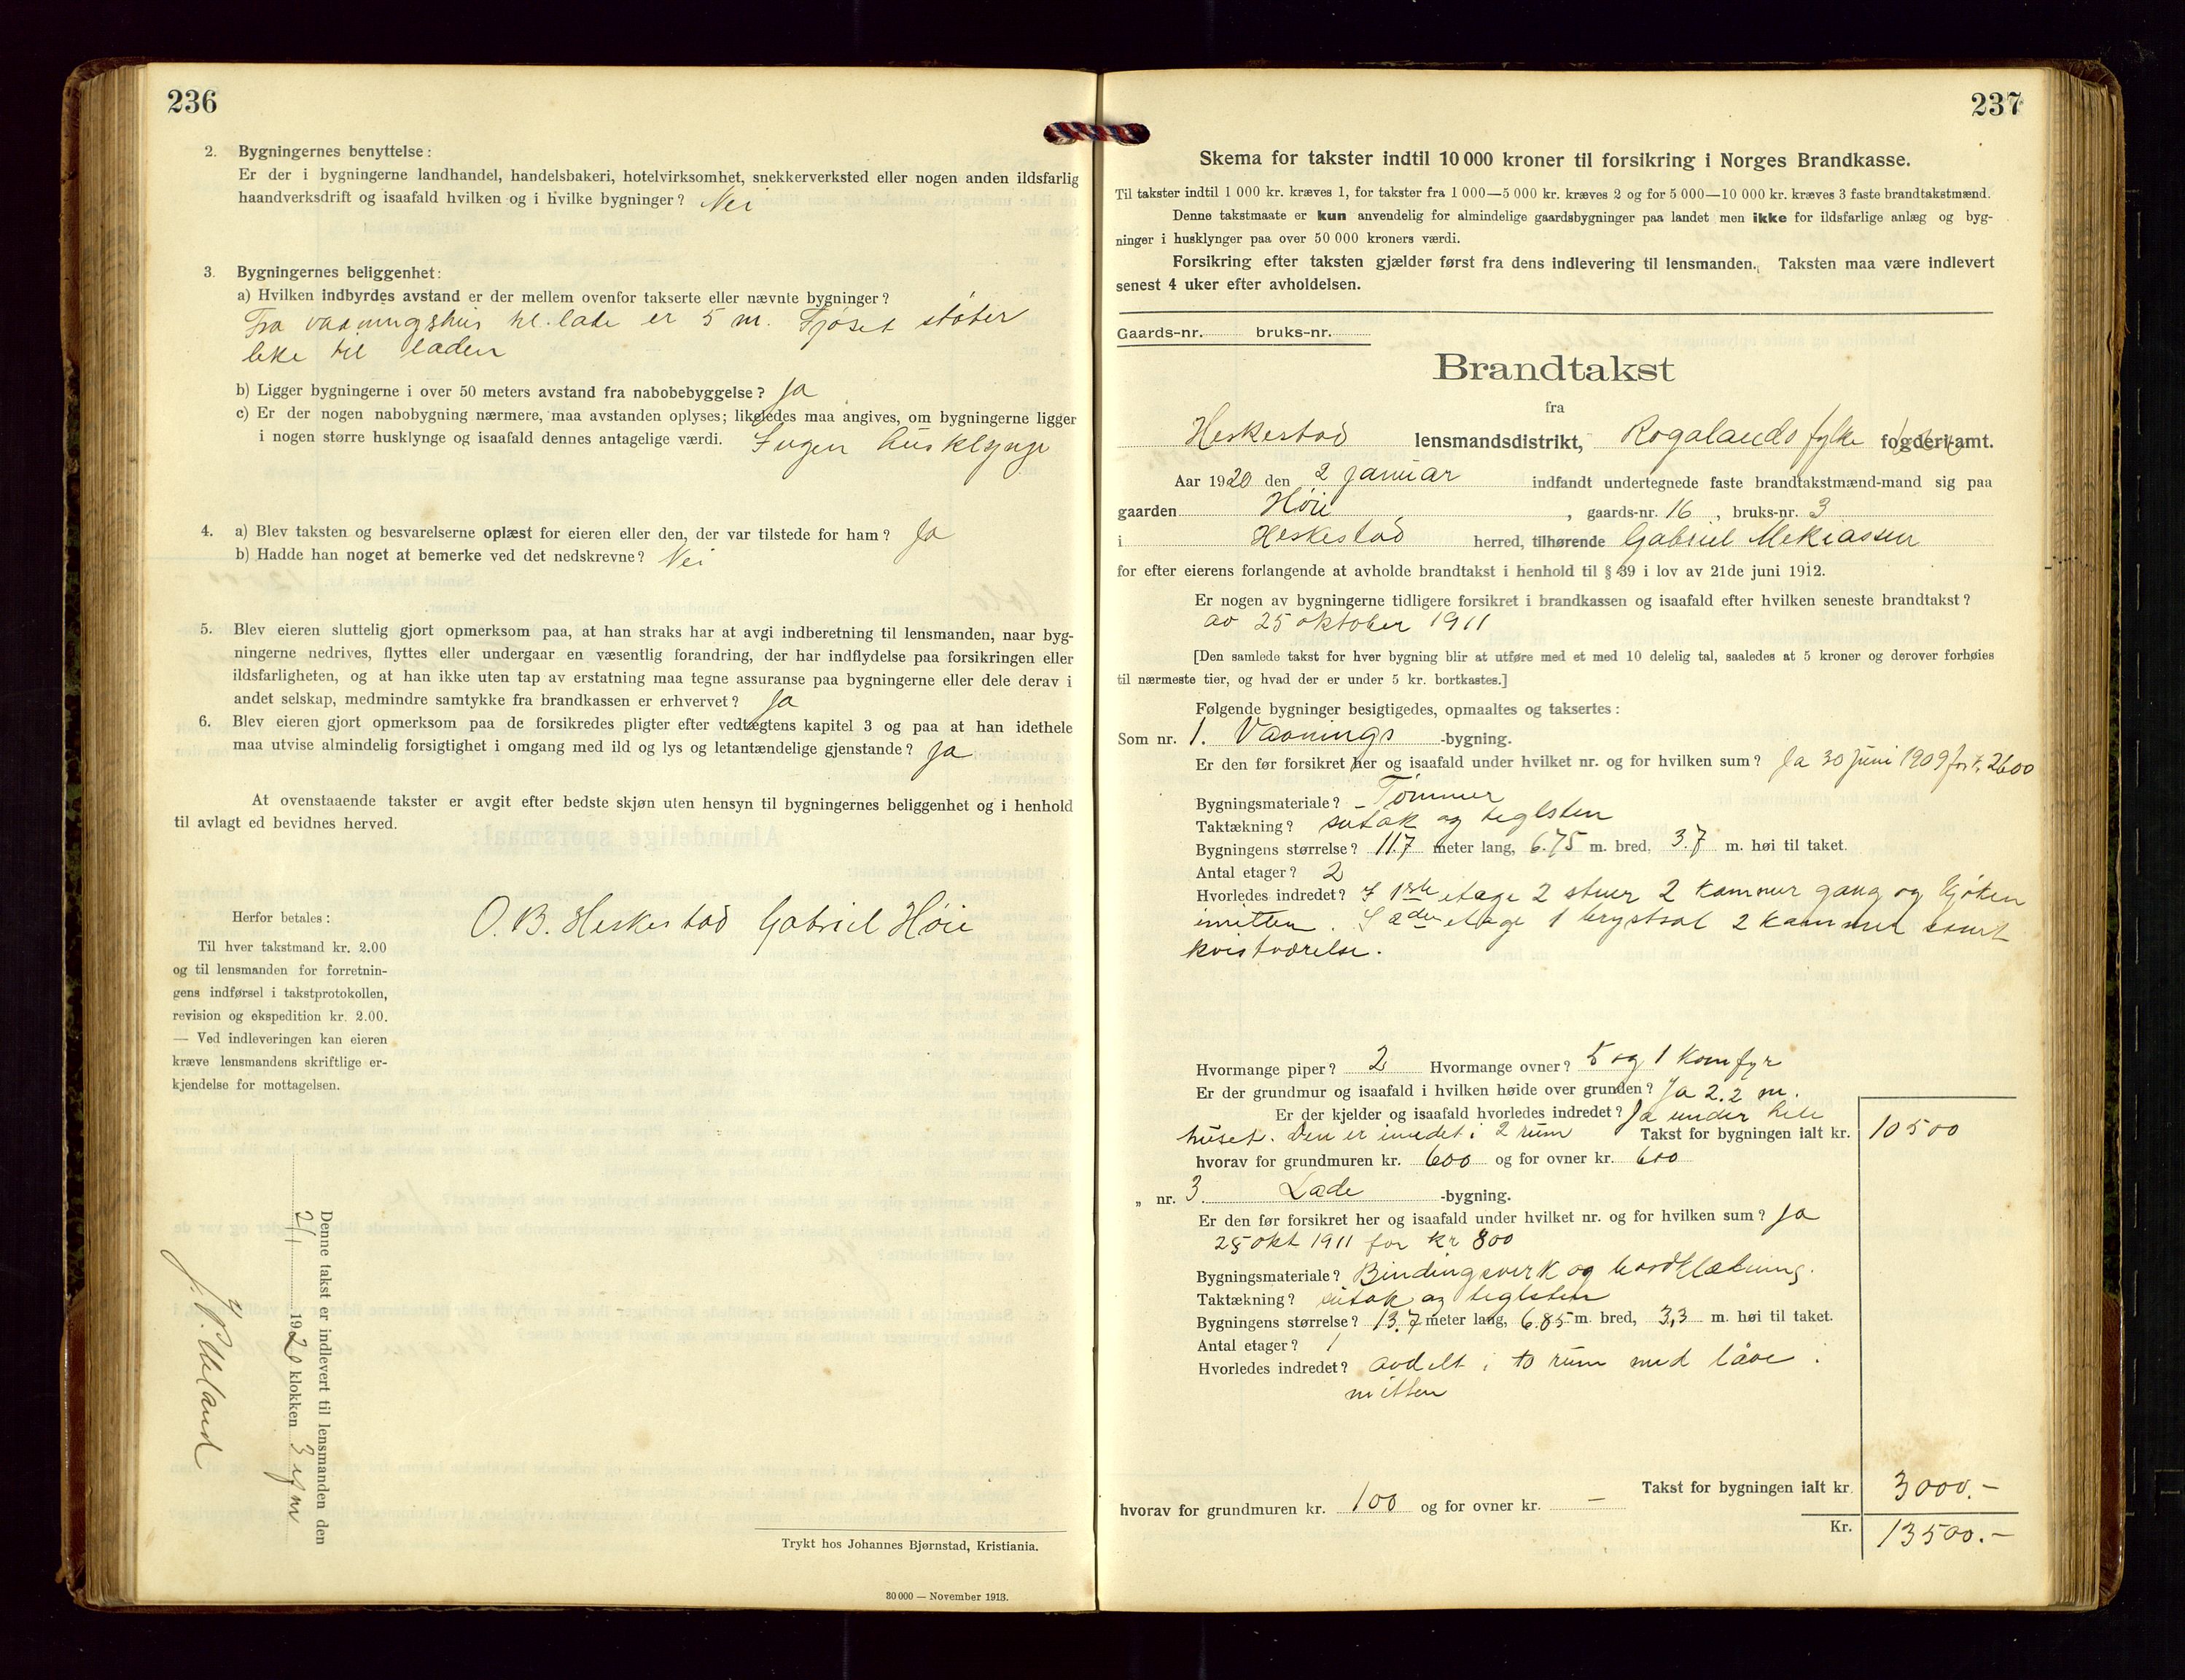 236
2. Bygningernes benyttelse:
Er der i bygningerne landhandel, handelsbakeri, hotelvirksomhet, snekkerverksted eller nogen anden ildsfarlig
haandverksdrift og isaafald hvilken og i hvilke bygninger? Nei
3. Bygningernes beliggenhet:
a) Hvilken indbyrdes avstand er der mellem ovenfor takserte eller nævnte bygninger?
Fra vaaningshus til lade er 5 m. Fjøset støter
like til laden
b) Ligger bygningerne i over 50 meters avstand fra nabobebyggelse? Ja
c) Er der nogen nabobygning nærmere, maa avstanden oplyses; likeledes maa angives, om bygningerne ligger
i nogen større husklynge og isaafald dennes antagelige værdi. Ingen husklynge
4. a) Blev taksten og besvarelserne oplæst for eieren eller den, der var tilstede for ham? Ja
b) Hadde han noget at bemerke ved det nedskrevne? Nei
5. Blev eieren sluttelig gjort opmerksom paa, at han straks har at avgi indberetning til lensmanden, naar byg-
ningerne nedrives, flyttes eller undergaar en væsentlig forandring, der har indflydelse paa forsikringen eller
ildsfarligheten, og at han ikke uten tap av erstatning maa tegne assuranse paa bygningerne eller dele derav i
andet selskap, medmindre samtykke fra brandkassen er erhvervet? Ja
6. Blev eieren gjort opmerksom paa de forsikredes pligter efter vedtægtens kapitel 3 og paa at han idethele
maa utvise almindelig forsigtighet i omgang med ild og lys og letantændelige gjenstande? Ja
At ovenstaaende takster er avgit efter bedste skjøn uten hensyn til bygningernes beliggenhet og i henhold
til avlagt ed bevidnes herved.
O. B. Heskestad Gabriel Høie
Herfor betales:
Til hver takstmand kr. 2.00
og til lensmanden for forretnin-
gens indførsel i takstprotokollen,
revision og ekspedition kr. 2.00.
— Ved indleveringen kan eieren
kræve lensmandens skriftlige er-
kjendelse for mottagelsen.
Denne takst er indlevert til lensmanden den
2/1 1920 klokken 3 efm
Trykt hos Johannes Bjørnstad, Kristiania.
30 000 — November 1913.
237
Skema for takster indtil 10 000 kroner til forsikring i Norges Brandkasse.
Til takster indtil 1 000 kr. kræves 1, for takster fra 1 000—5 000 kr. kræves 2 og for 5 000—10 000 kr. kræves 3 faste brandtakstmænd.
Denne takstmaate er kun anvendelig for almindelige gaardsbygninger paa landet men ikke for ildsfarlige anlæg og byg-
ninger i husklynger paa over 50 000 kroners værdi.
Forsikring efter taksten gjælder først fra dens indlevering til lensmanden. Taksten maa være indlevert
senest 4 uker efter avholdelsen.
Gaards-nr. bruks-nr.
Brandtakst
fra
Heskestad lensmandsdistrikt, Rogalands fylke fogderi, amt.
Aar 1920 den 2 januar indfandt undertegnede faste brandtakstmænd-mand sig paa
gaarden Høie, gaards-nr. 16, bruks-nr. 3
i Heskestad herred, tilhørende Gabriel Mekiassen
for efter eierens forlangende at avholde brandtakst i henhold til § 39 i lov av 21de juni 1912.
Er nogen av bygningerne tidligere forsikret i brandkassen og isaafald efter hvilken seneste brandtakst?
av 25 oktober 1911
[Den samlede takst for hver bygning blir at utføre med et med 10 delelig tal, saaledes at 5 kroner og derover forhøies
til nærmeste tier, og hvad der er under 5 kr. bortkastes.]
Følgende bygninger besigtigedes, opmaaltes og taksertes:
Som nr. 1. Vaanings-bygning.
Er den før forsikret her og isaafald under hvilket nr. og for hvilken sum? Ja 30 juni 1909 for k. 2600
Bygningsmateriale? Tømmer
Taktækning? sutak og teglsten
Bygningens størrelse? 11.7 meter lang, 6.75 m. bred, 3.7 m. høi til taket.
Antal etager? 2
Hvorledes indredet? I 1ste etage 2 stuer 2 kammer gang og kjøken
imitten. I 2den etage 1 brystsal 2 kammer samt
kvistværelse.
Hvormange piper? 2 Hvormange ovner? 5 og 1 komfyr
Er der grundmur og isaafald i hvilken høide over grunden? Ja 2.2 m.
Er der kjelder og isaafald hvorledes indredet? Ja under hele
huset. Den er inredet i 2 rum Takst for bygningen ialt kr. 10500
hvorav for grundmuren kr. 600 og for ovner kr. 600
„ nr. 3. Lade -bygning.
Er den før forsikret her og isaafald under hvilket nr. og for hvilken sum? Ja
25 okt 1911 for kr 800
Bygningsmateriale? Bindingsverk og bordklædning.
Taktækning? sutak og teglsten
Bygningens størrelse? 13.7 meter lang, 6.85 m. bred, 3,3 m. høi til taket.
Antal etager? 1
Hvorledes indredet? avdelt i to rum med låve i
mitten
Takst for bygningen ialt kr. 3000.-
hvorav for grundmuren kr. 100 og for ovner kr. —
Kr. 13500.-